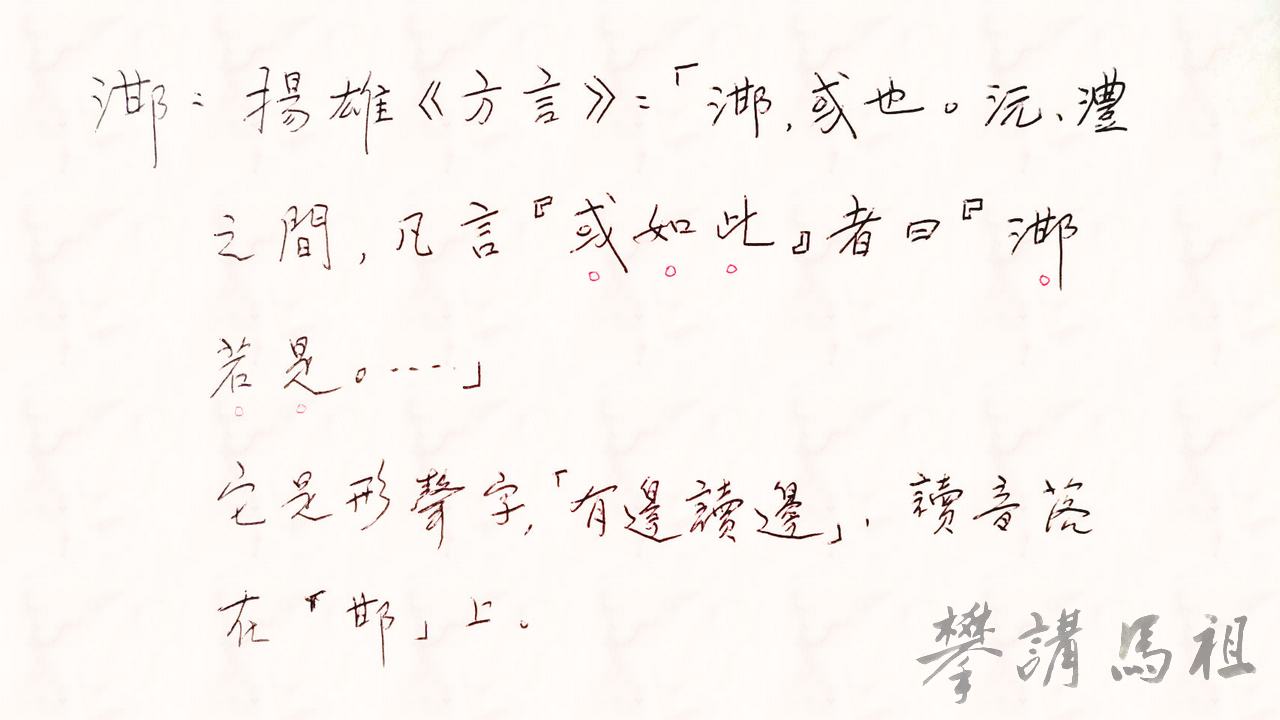 㴉：揚雄《方言》：「㴉，或也。沅、澧
之間，凡言『或如此』者曰『㴉
若是。……」
它是形聲字，「有邊讀邊」，讀音落
在「邯」上。
攀講馬祖